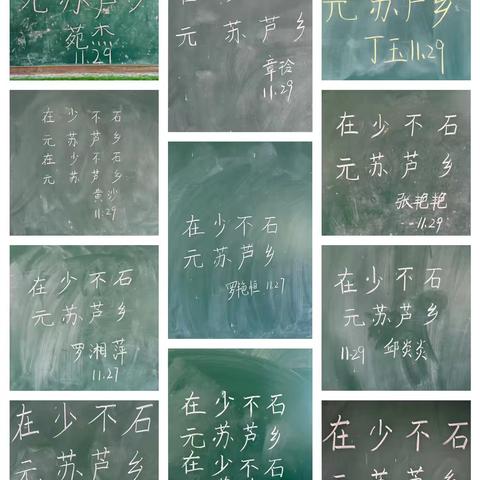 元苏芦乡
苑杰
11.29
在少不石
元苏芦乡
在少不石
元苏芦乡
黄沙
11.29
在少不石
元苏芦乡
罗湘萍
11.27
在少不石
元苏芦乡
元苏芦乡
章玲
11.29
在少不石
元苏芦乡
罗艳恒 11.27
在少不石
元苏芦乡
在少不石
元苏芦乡
丁玉11.29
在少不石
元苏芦乡
张艳艳
11.29
在少不石
元苏芦乡
11.29 邱炎炎
在少不石
元苏芦乡